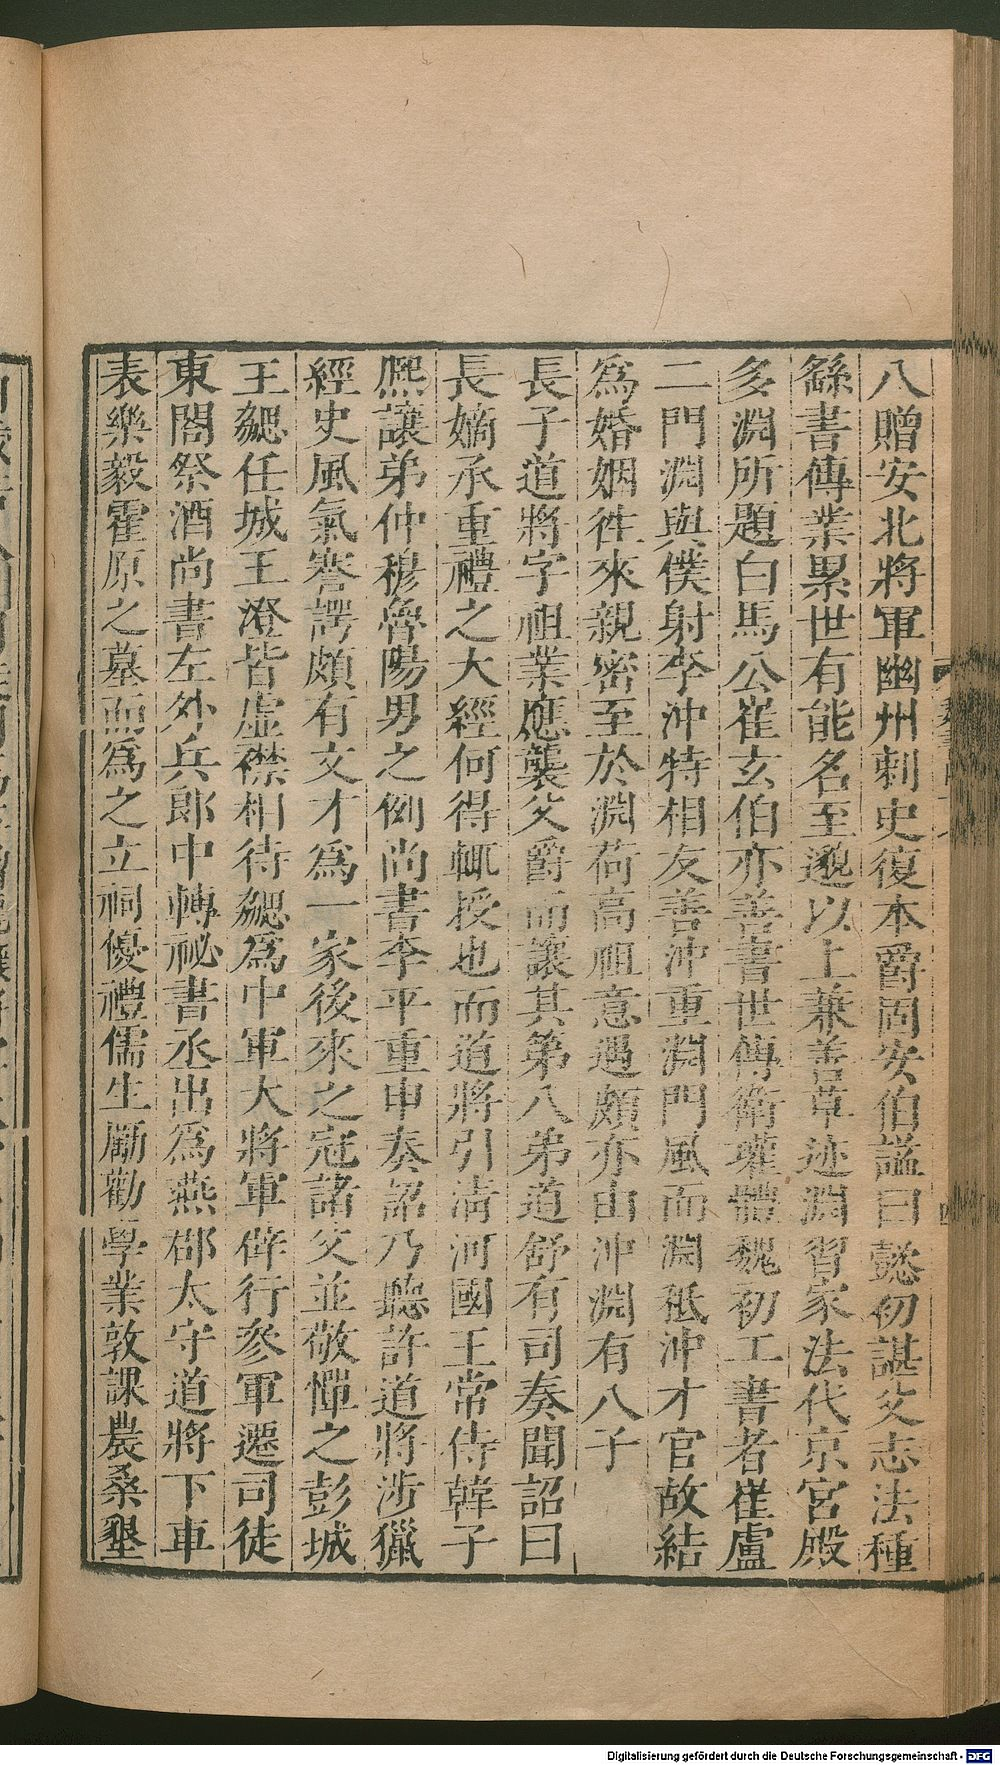 八贈安北將軍幽州刺史復本爵固安伯謚曰懿初諶父志法種
繇書傳業累世有能名至邈以上兼善草迹淵習家法代京宮殿
多淵所題白馬公崔玄伯亦善書世傳衛瓘體魏初工書者崔盧
二門淵與僕射李沖特相友善沖重淵門風而淵祗沖才官故結
為婚姻往來親密至於淵荷高祖意遇頗亦由沖淵有八子
長子道將字祖業應襲父爵而讓其第八弟道舒有司奏聞詔曰
長嫡承重禮之大經何得輒授也而道將引清河國王常侍韓子
熈讓弟仲穆魯陽男之例尚書李平重申奏詔乃聽許道將涉獵
經史風氣謇諤頗有文才為一家後來之冠諸父並敬憚之彭城
王勰任城王澄皆虛襟相待勰為中軍大將軍辟行參軍遷司徒
東閤祭酒尚書左外兵郎中轉祕書丞出為燕郡太守道將下車
表樂毅霍原之墓而為之立祠優禮儒生勵勸學業敦課農桑墾
Digitalisierung gefördert durch die Deutsche Forschungsgemeinschaft - DFG